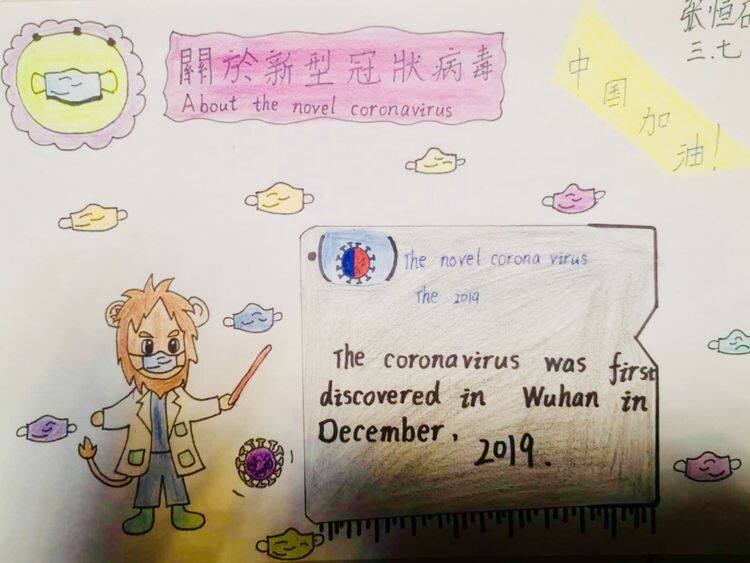 關於新型冠狀病毒
About the novel coronavirus
张恒
三.七
中国加油!
The novel corona virus
The 2019
The coronavirus was first
discovered in Wuhan in
December,
2019.